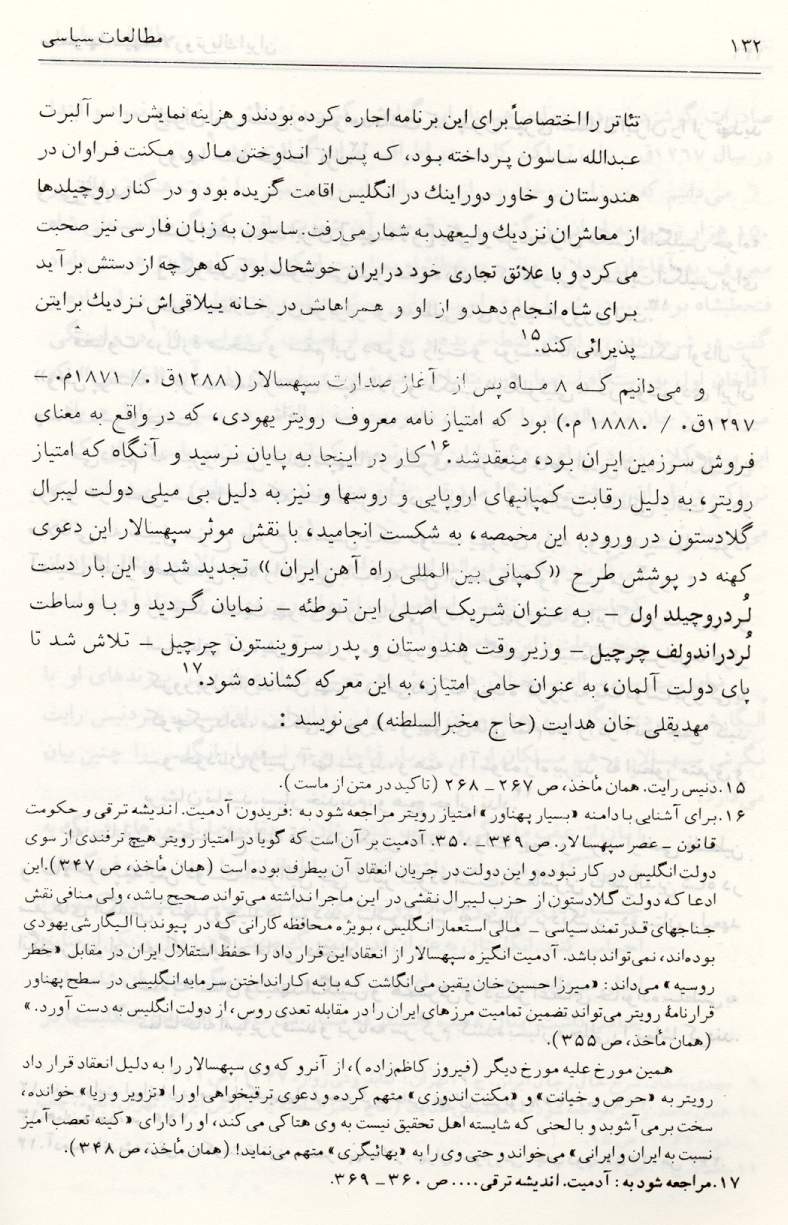 ۱۳۲
مطالعات سیاسی
تئاتر را اختصاصاً برای این برنامه اجاره کرده بودند و هزینه نمایش را سر آلبرت
عبدالله ساسون پرداخته بود، که پس از اندوختن مال و مکنت فراوان در
هندوستان و خاور دور اینك در انگلیس اقامت گزیده بود و در کنار روچیلدها
از معاشران نزدیك ولیعهد به شمار می‌رفت. ساسون به زبان فارسی نیز صحبت
می‌کرد و با علائق تجاری خود در ایران خوشحال بود که هر چه از دستش برآید
برای شاه انجام دهد و از او و همراهانش در خانه ییلاقی‌اش نزدیك برایتن
پذیرائی کند.۱۵
و می‌دانیم کـه ۸ مـاه پس از آغاز صدارت سپهسالار ( ۱۲۸۸ق ۰/ ۱۸۷۱م۰ –
۱۲۹۷ق۰ / ۱۸۸۸۰ م۰) بود که امتیاز نامه معروف رویتر یهودی، که در واقع به معنای
فروش سرزمین ایران بود، منعقدشد.۱۶ کار در اینجا به پایان نرسید و آنگاه که امتیاز
رویتر، به دلیل رقابت کمپانیهای اروپایی و روسها و نیز به دلیل بی میلی دولت لیبرال
گلادستون در ورودبه این مخمصه، به شکست انجامید، با نقش موثر سپهسالار این دعوی
کهنه در پوشش طرح «کمپانی بین المللی راه آهن ایران » تجدید شد و این بار دست
لُردروچیلد اول – به عنوان شریک اصلی این توطئه – نمایان گردید و با وساطت
لُردراندولف چرچیل – وزیر وقت هندوستان و پدر سروینستون چرچیل – تلاش شد تا
پای دولت آلمان، به عنوان حامی امتیاز، به این معرکه کشانده شود.۱۷
مهدیقلی خان هدایت (حاج مخبرالسلطنه) می‌نویسد :
۱۵. دنیس رایت. همان مأخذ، ص ۲۶۷ ـ ۲۶۸ (تاکید در متن از ماست).
۱۶. برای آشنایی با دامنه «بسیار پهناور» امتیاز رویتر مراجعه شود به :فریدون آدمیت. اندیشه ترقی و حکومت
قانون ـ عصر سپهسالار. ص ۳۴۹ ـ ۳۵۰. آدمیت بر آن است که گویا در امتیاز رویتر هیچ ترفندی از سوی
دولت انگلیس در کار نبوده و این دولت در جریان انعقاد آن بیطرف بوده است (همان مأخذ، ص ۳۴۷).این
ادعا که دولت گلادستون از حزب لیبرال نقشی در این ماجرا نداشته می‌تواند صحیح باشد، ولی منافی نقش
جناحهای قدرتمند سیاسی ـ مالی استعمار انگلیس، بویژه محافظه کارانی که در پیوند با الیگارشی یهودی
بوده‌اند، نمی‌تواند باشد. آدمیت انگیزه سپهسالار از انعقاد این قرار داد را حفظ استقلال ایران در مقابل «خطر
روسیه» می‌داند: «میرزا حسین خان یقین می‌انگاشت که با به کارانداختن سرمایه انگلیسی در سطح پهناور
قرارنامهٔ رویتر می‌تواند تضمین تمامیت مرزهای ایران را در مقابله تعدی روس، از دولت انگلیس به دست آورد.»
(همان مأخذ، ص ۳۵۵).
همین مورخ علیه مورخ دیگر (فیروز کاظم‌زاده )، از آنرو که وی سپهسالار را به دلیل انعقاد قرار داد
رویتر به «حرص و خیانت» و «مکنت‌اندوزی» متهم کرده و دعوی ترقیخواهی او را «تزویر و ریا» خوانده،
سخت برمی آشوبد و با لحنی که شایسته اهل تحقیق نیست به وی هتاکی می‌کند، او را دارای «کینه تعصب آمیز
نسبت به ایران و ایرانی» می‌خواند و حتی وی را به «بهائیگری» متهم می‌نماید! (همان مأخذ، ص ۳۴۸).
۱۷. مراجعه شود به : آدمیت. اندیشه ترقی.... ص ۳۶۰ ـ ۳۶۹.